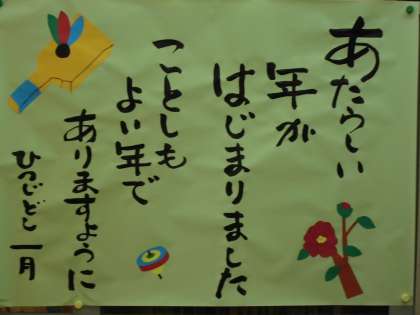 あたらしい
年が
はじまりました
ことしも
よい年で
ありますように
ひつじどし 一月